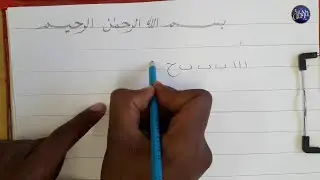 بسم الله الرحمن الرحيم
ا ا ا ب ب ب ح